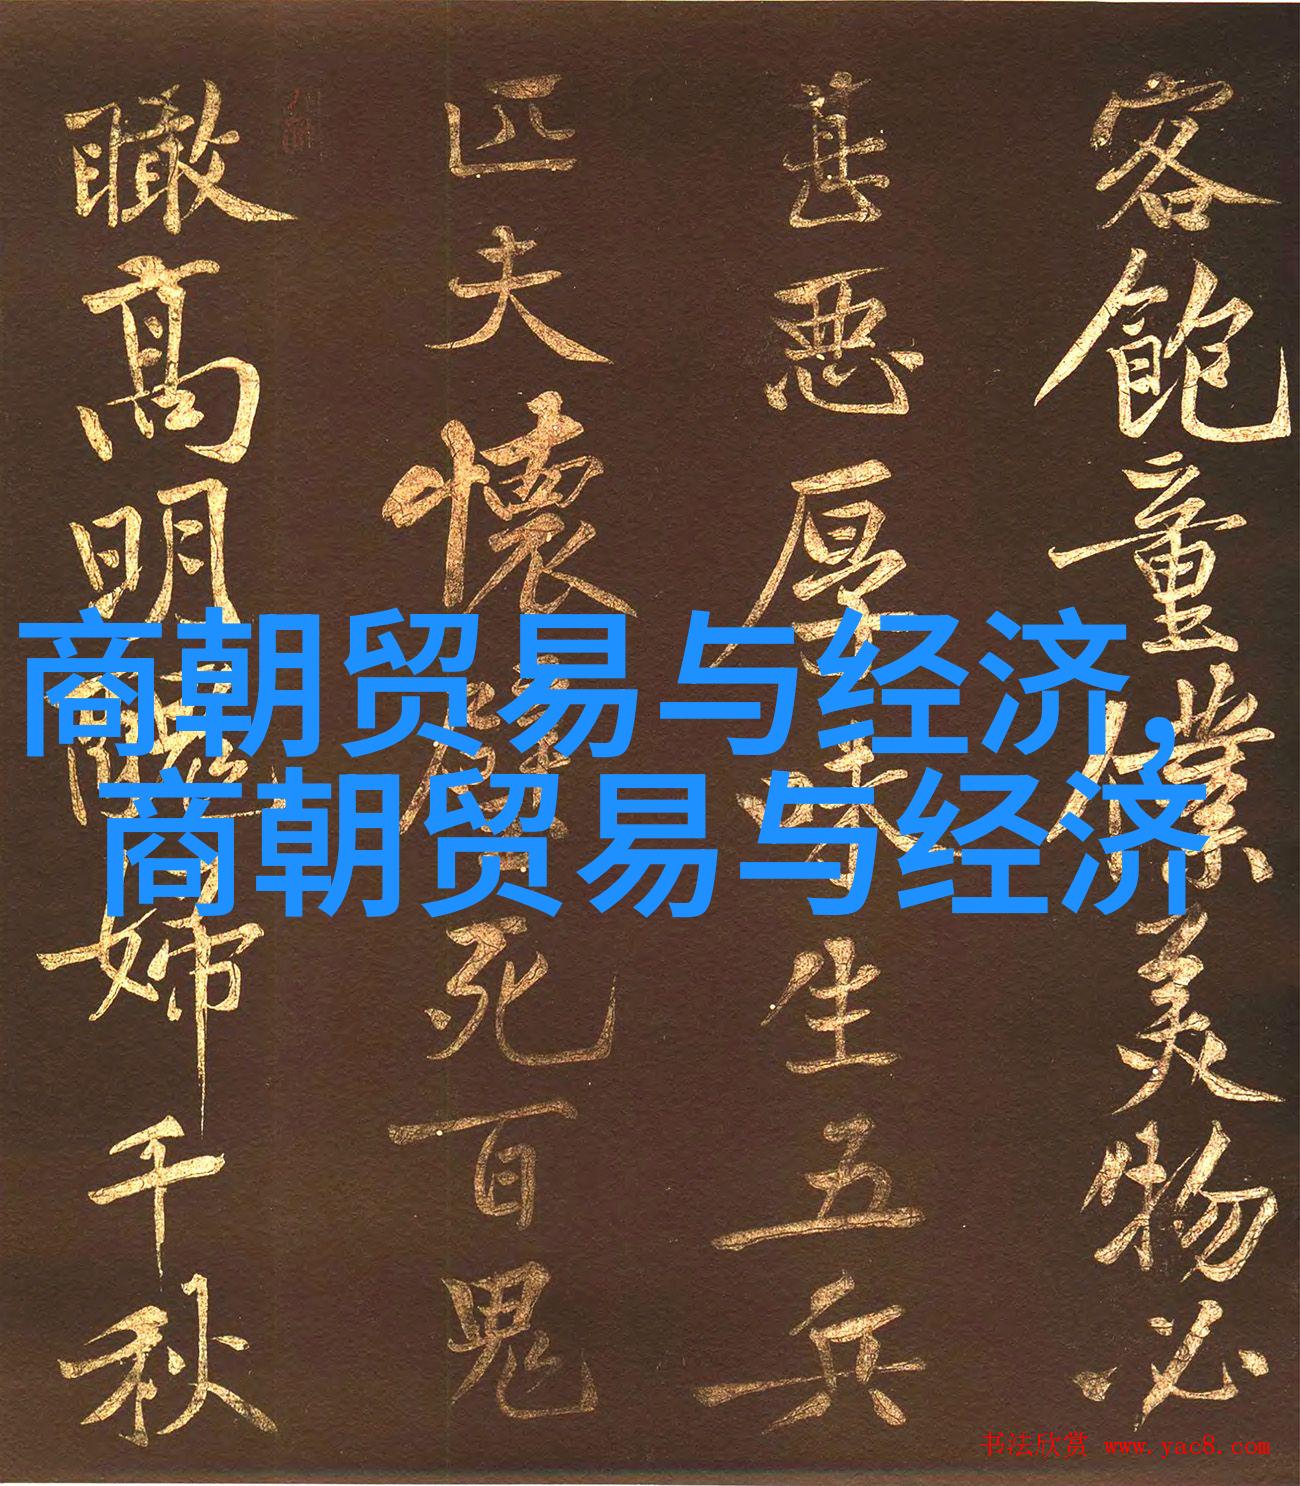 客飽童僕美物必
甚惡厚味生五兵
匹夫懷璧死百鬼
瞰高明醜婦千秋
商朝贸易与经济,
商朝贸易与经济
书法欣赏 www.yac8.com